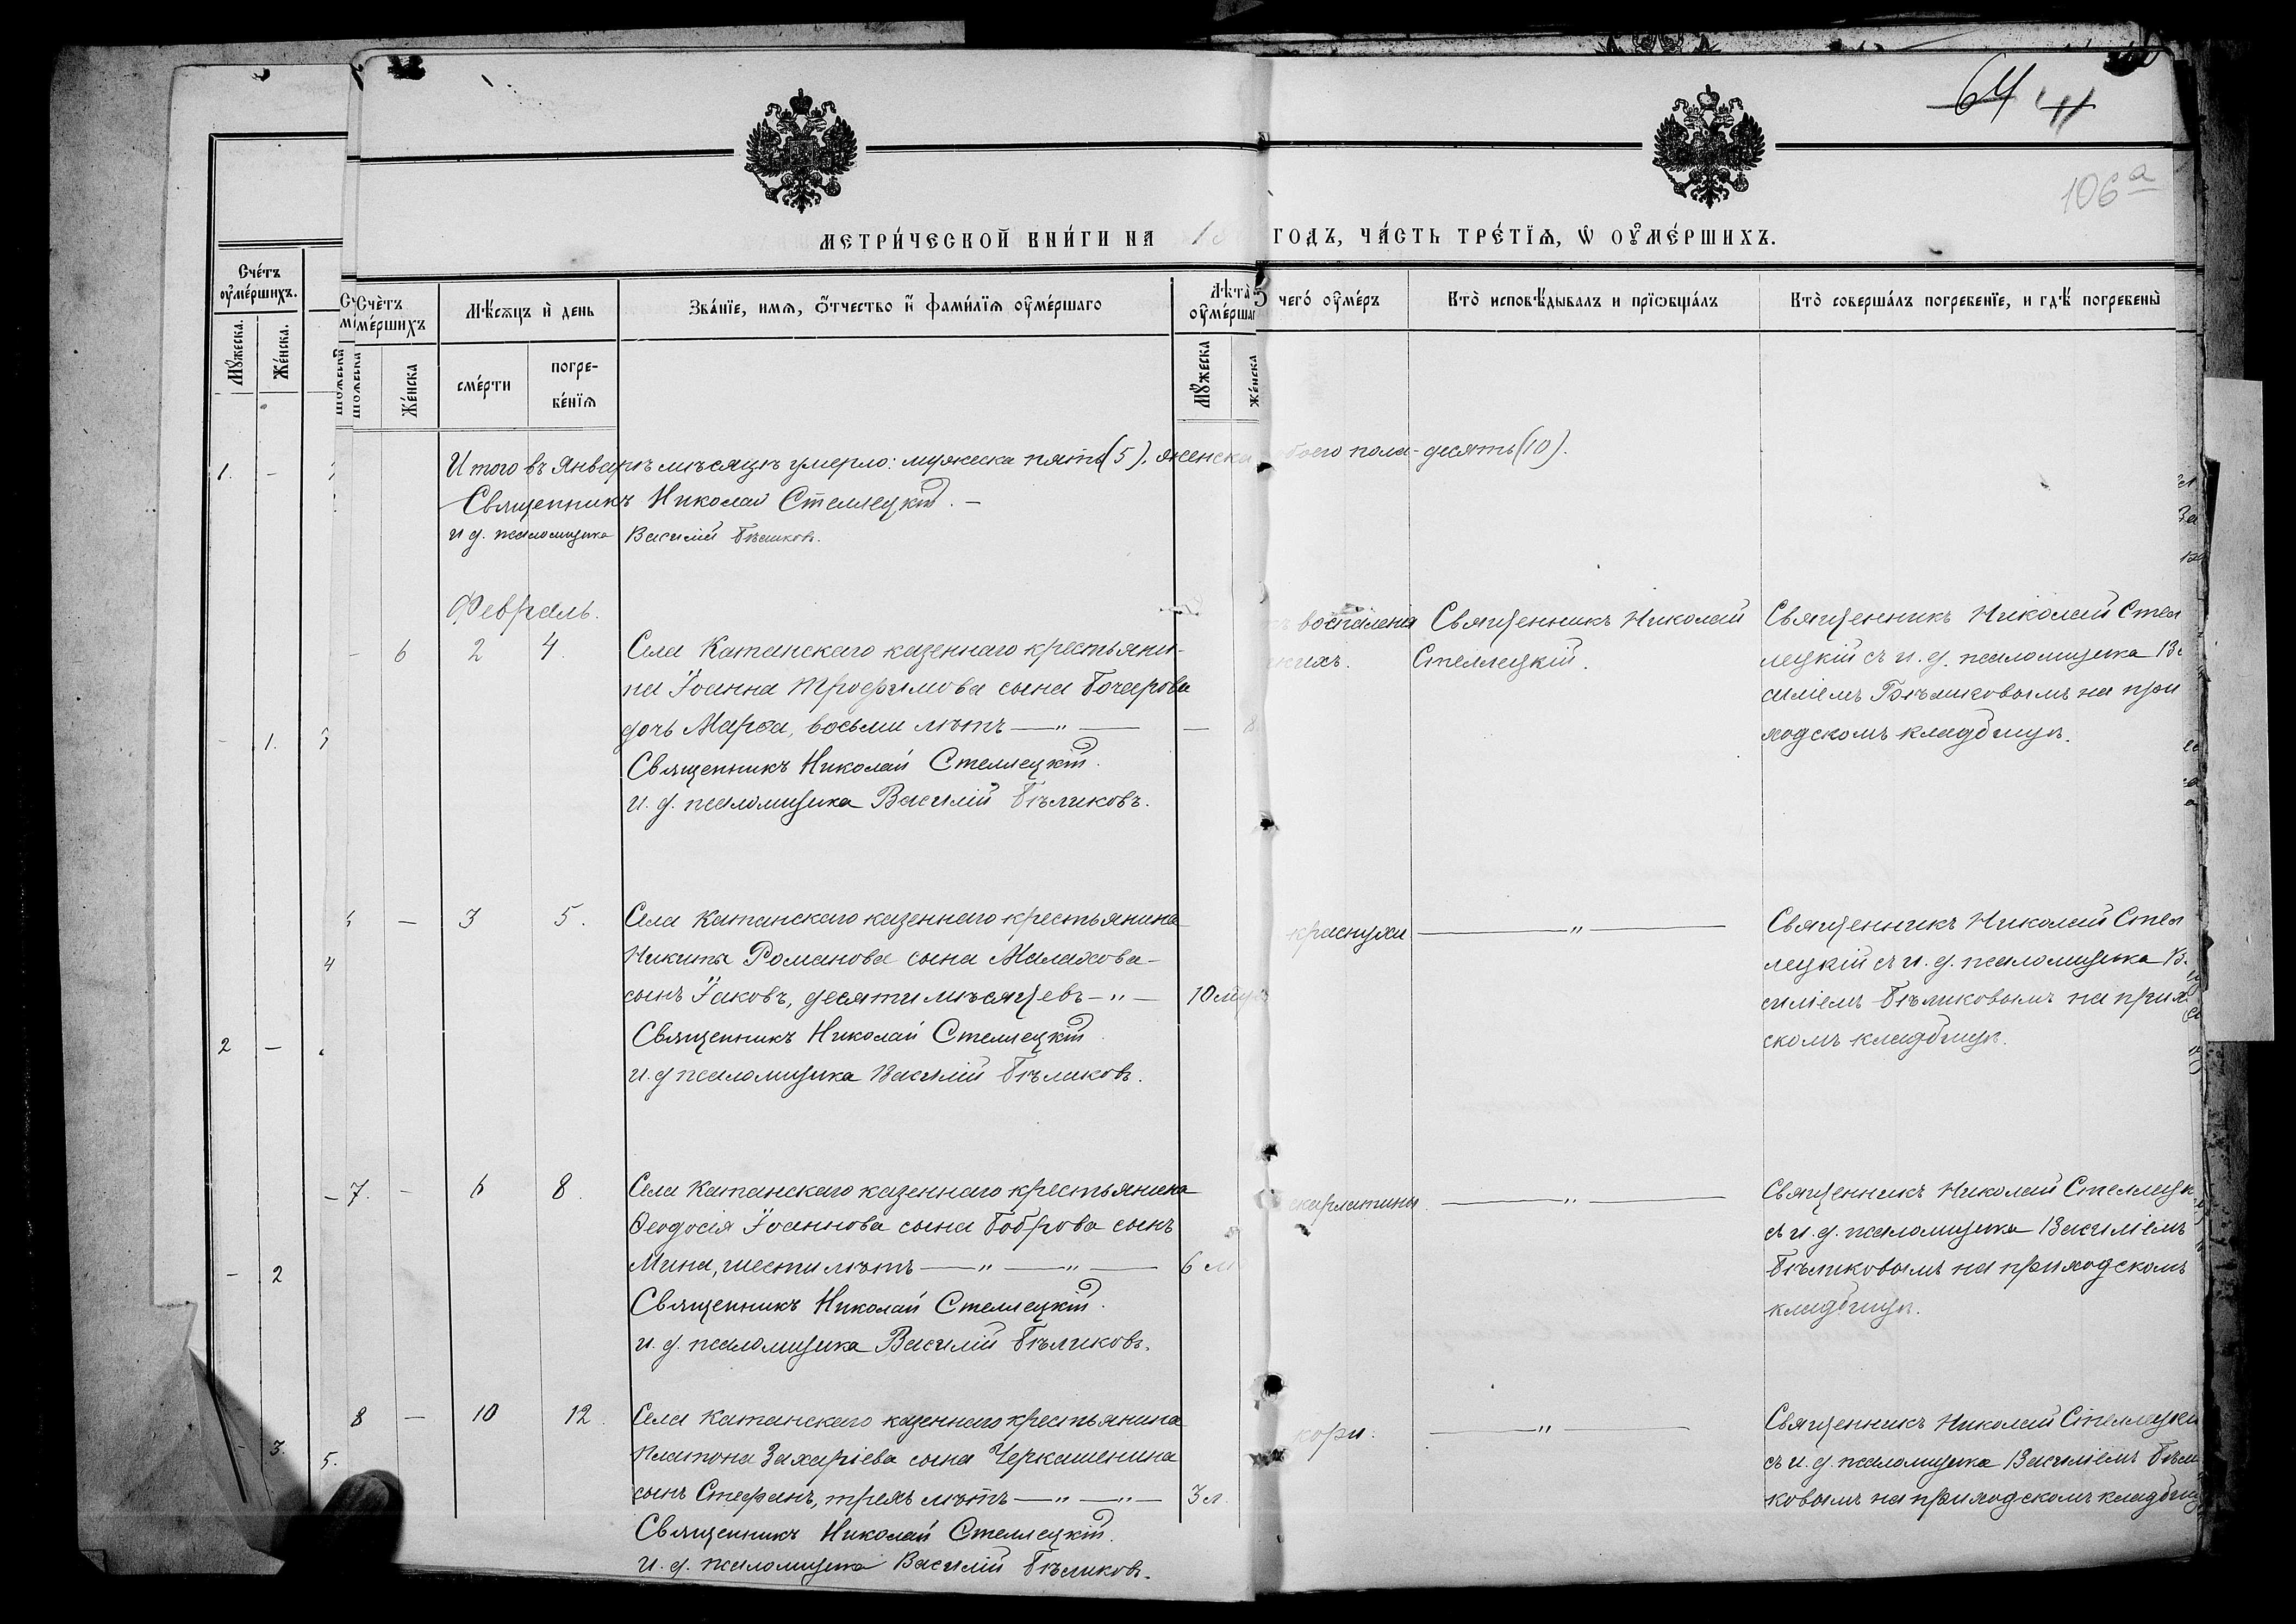 64
106 а
МЕТРИ́ЧЕСКОЙ КНИ́ГИ НА 1 ГОДЪ, ЧА́СТЬ ТРЕ́ТЇѦ, Ѡ҆ ОУ҆МЕ́РШИХЪ.
Сче́тъ оу҆ме́ршихъ.
Мꙋ́жеска.
Же́нска.
Сче́тъ
ме́ршихъ
Же́нска
Мѣ́сѧцъ и҆ день
сме́рти
погре-
бе́нїѧ
Зва́нїе, имѧ, ѻ҆́тчество и҆ фами́лїѧ оу҆ме́ршаго
Лѣта̀
оу҆ме́ршаг
Мꙋ́жеска
Же́нска
чего́ оу҆ме́ръ
Кто̀ исповѣ́дывалъ и прїѡбща́лъ
Кто̀ соверша́лъ погребенїе, и гдѣ̀ погребены̀
Итого въ Январѣ мѣсяцѣ умерло: мужеска пять (5), женска обоего пола - десять (10).
Священникъ Николай Стеллецкій. -
и д. псаломщика Василій Бѣликовъ.
Февраль.
- 6 2 4.
Села Катанскаго казеннаго крестьяни-
на Іоанна Трофимова сына Бочарова
дочь Марѳа, восьми лѣтъ — " —
Священникъ Николай Стеллецкій.
И. д. псаломщика Василій Бѣликовъ.
воспаленія
гкихъ.
Священникъ Николай
Стеллецкій.
Священникъ Николай Стел
лецкій съ и. д. псаломщика Ва
силіемъ Бѣликовымъ на при
ходскомъ кладбищѣ.
— 3 5.
Села Катанскаго казеннаго крестьянина
Никиты Романова сына Малахова -
сынъ Іаковъ, десяти мѣсяцевъ — " — 10 мѣс
Священникъ Николай Стеллецкій
и. д псаломщика Василій Бѣликовъ.
краснухи — " —
Священникъ Николай Стел
лецкій съ и. д. псаломщика Ва
силіемъ Бѣликовымъ на прих
скомъ кладбищѣ.
7. - 6 8.
Села Катанскаго казеннаго крестьянина
Ѳеодосія Іоаннова сына Боброва сынъ
Мина, шести лѣтъ — " — " — 6 л
Священникъ Николай Стеллецкій.
и. д. псаломщика Василій Бѣликовъ.
скарлатины. — " —
Священникъ Николай Стеллецк
съ и. д. псаломщика Василіемъ
Бѣликовымъ на приходскомъ
кладбищѣ.
8 — 10 12.
Села Катанскаго казеннаго крестьянина
Платона Захаріева сына Черкашенина
сынъ Стефанъ, трехъ лѣтъ — " — " — 3 л.
Священникъ Николай Стеллецкій.
И. д. псаломщика Василій Бѣликовъ.
кори. — " —
Священникъ Николай Стеллецкі
съ и. д. псаломщика Василіемъ Бѣли
ковымъ на приходскомъ кладбищ
1. -
- 1.
2 -
- 2
- 3
4
5.